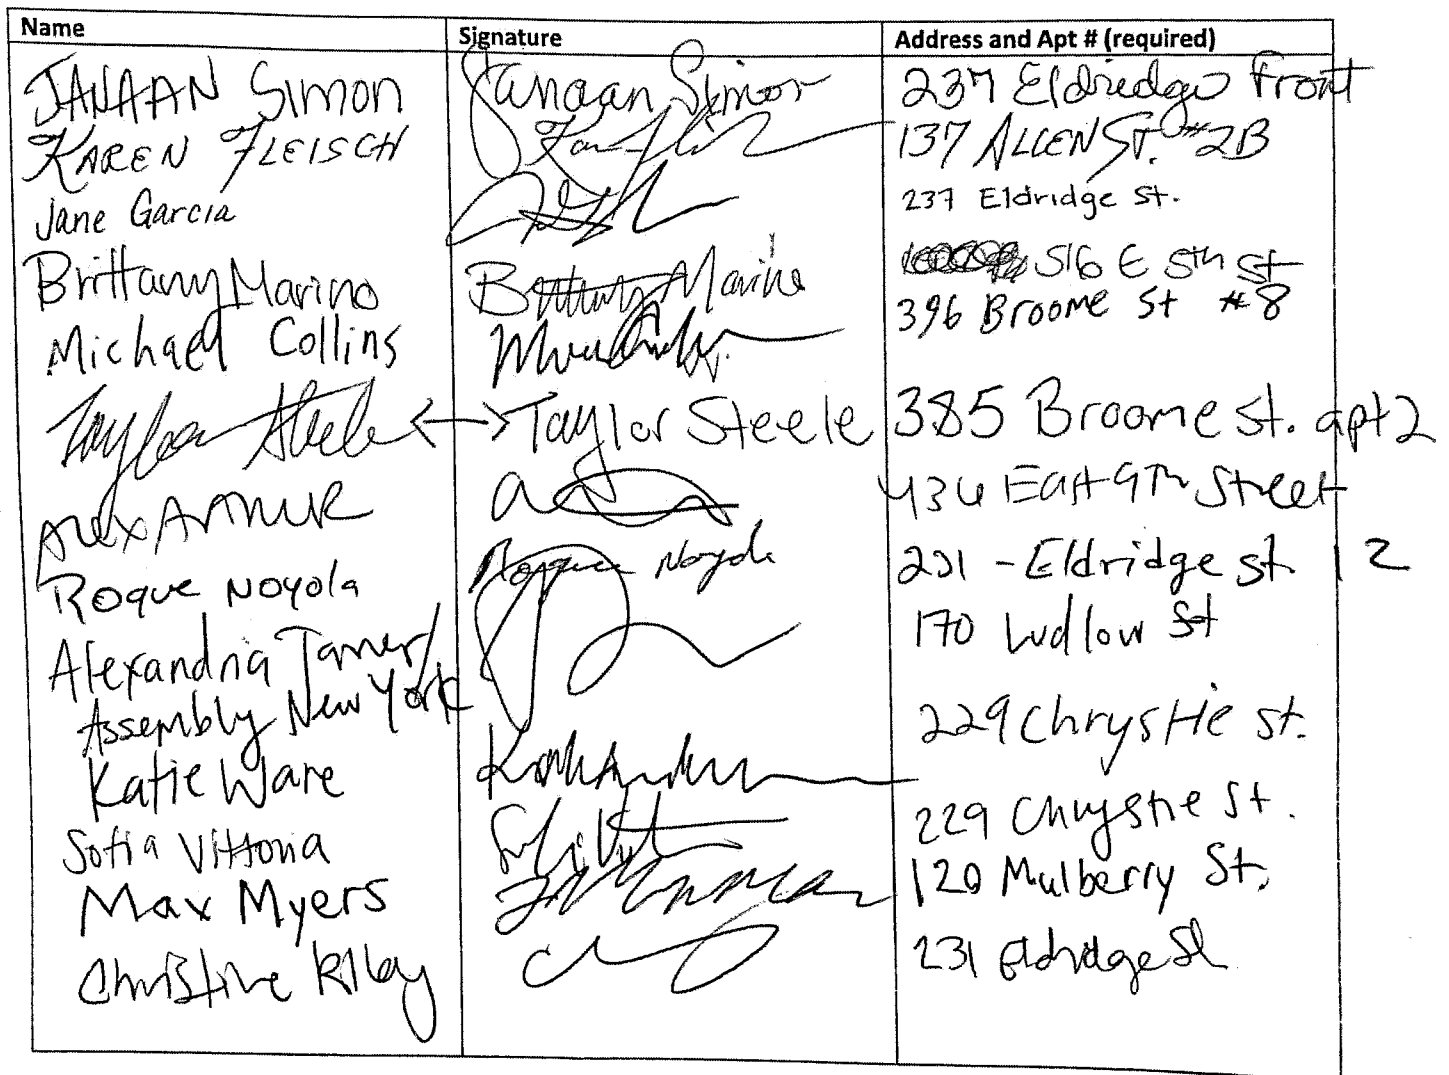 Name Signature Address and Apt # (required)
JANAAN Simon Janaan Simon 237 Eldredge Front
KAREN FLEISCH 137 ALLEN ST. #2B
Jane Garcia 237 Eldridge St.
Brittany Marino Brittany Marino 516 E 5th St
Michael Collins 396 Broome St #8
Taylor Steele <-> Taylor Steele 385 Broome St. apt 2
Alex Arthur 436 East 9th Street
Roque Noyola Roque Noyola 231 - Eldridge St. 12
Alexandria Tanner/ 170 Ludlow St
Assembly New York
Katie Ware 229 Chrystie St.
Sofia Vittoria 229 Chrystie St.
Max Myers 120 Mulberry St.
Christine Riley 231 Eldridge St